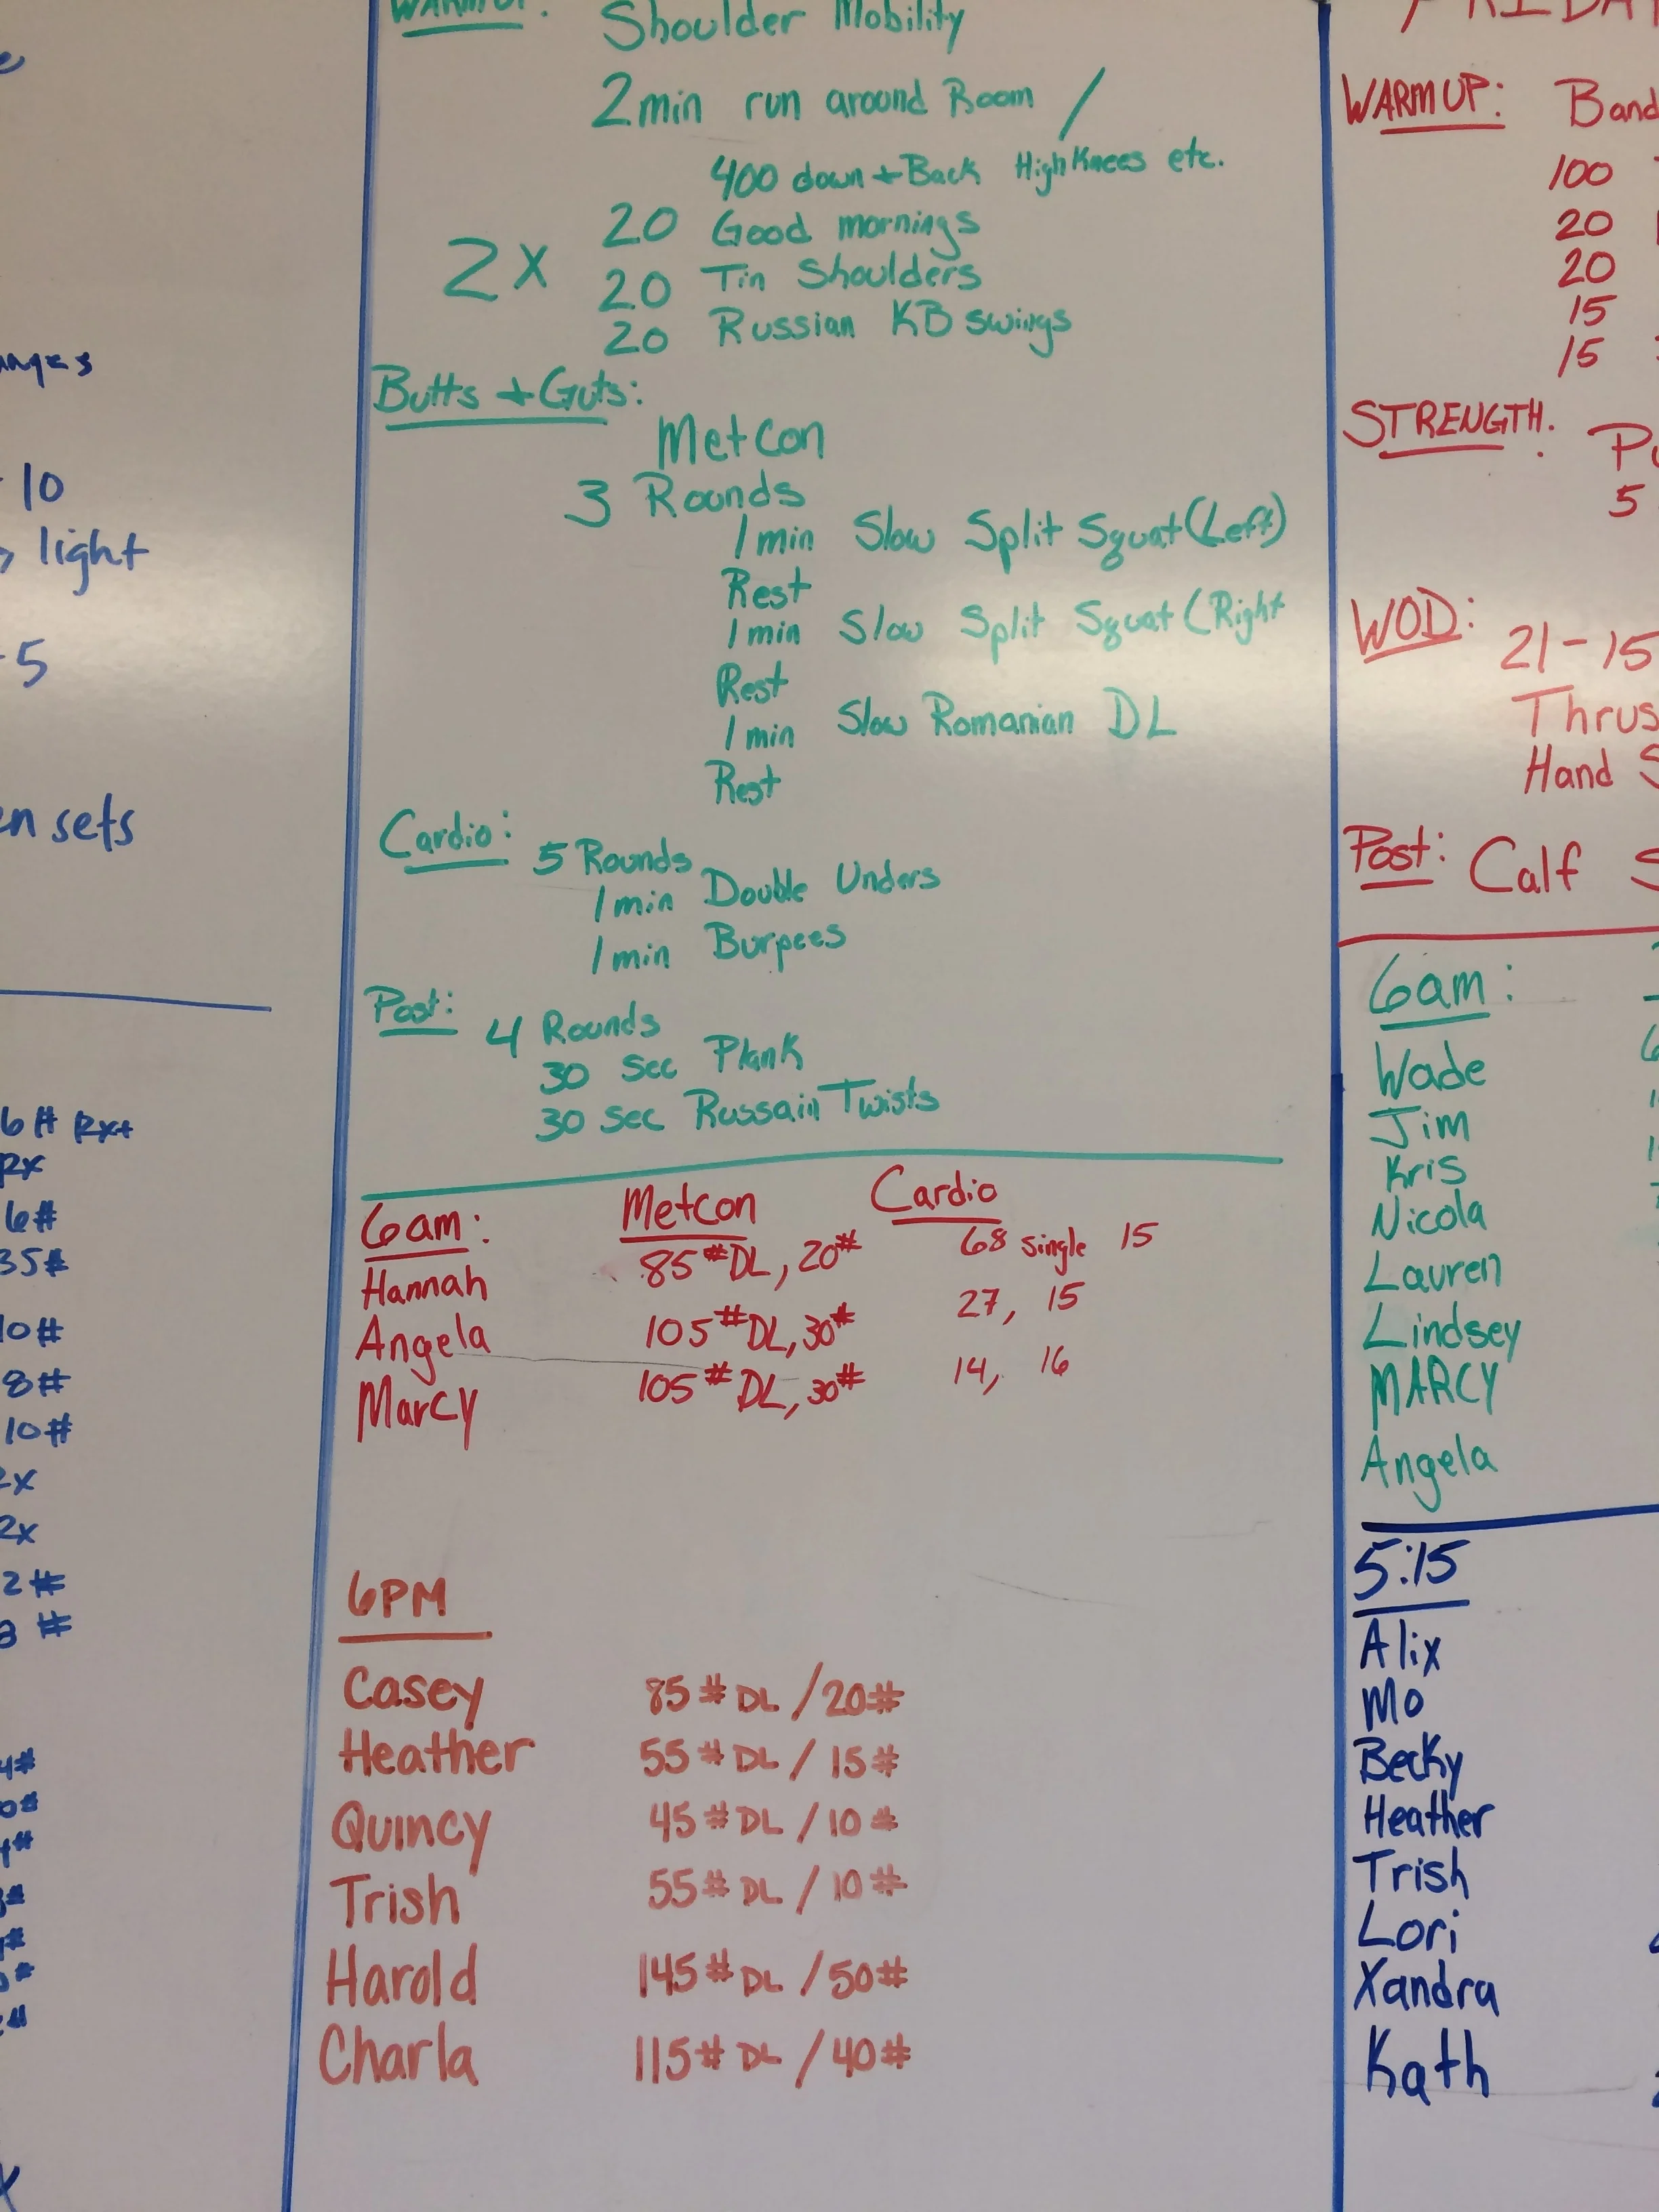 WARMUP: Shoulder Mobility
2min run around Room /
400 down + Back High Knees etc.
2x
20 Good mornings
20 Tin Shoulders
20 Russian KB swings
Butts + Guts:
Metcon
3 Rounds
1 min Slow Split Squat (Left)
Rest
1 min Slow Split Squat (Right
Rest
1 min Slow Romanian DL
Rest
Cardio: 5 Rounds
1 min Double Unders
1 min Burpees
Post: 4 Rounds
30 sec Plank
30 sec Russain Twists
6am: Metcon Cardio
Hannah 85#DL, 20# 68 single 15
Angela 105#DL, 30# 27, 15
Marcy 105#DL, 30# 14, 16
6PM
Casey 85# DL / 20#
Heather 55# DL / 15#
Quincy 45# DL / 10#
Trish 55# DL / 10#
Harold 145# DL / 50#
Charla 115# DL / 40#
10
light
5
en sets
6# Rx+
Rx
6#
35#
10#
8#
10#
2x
2#
3#
FRIDAY
WARM UP: Band
100
20
20
15
15
STRENGTH:
5
WOD: 21-15
Thrus
Hand S
Post: Calf S
6am:
Wade
Jim
Kris
Nicola
Lauren
Lindsey
MARCY
Angela
5:15
Alix
Mo
Becky
Heather
Trish
Lori
Xandra
Kath